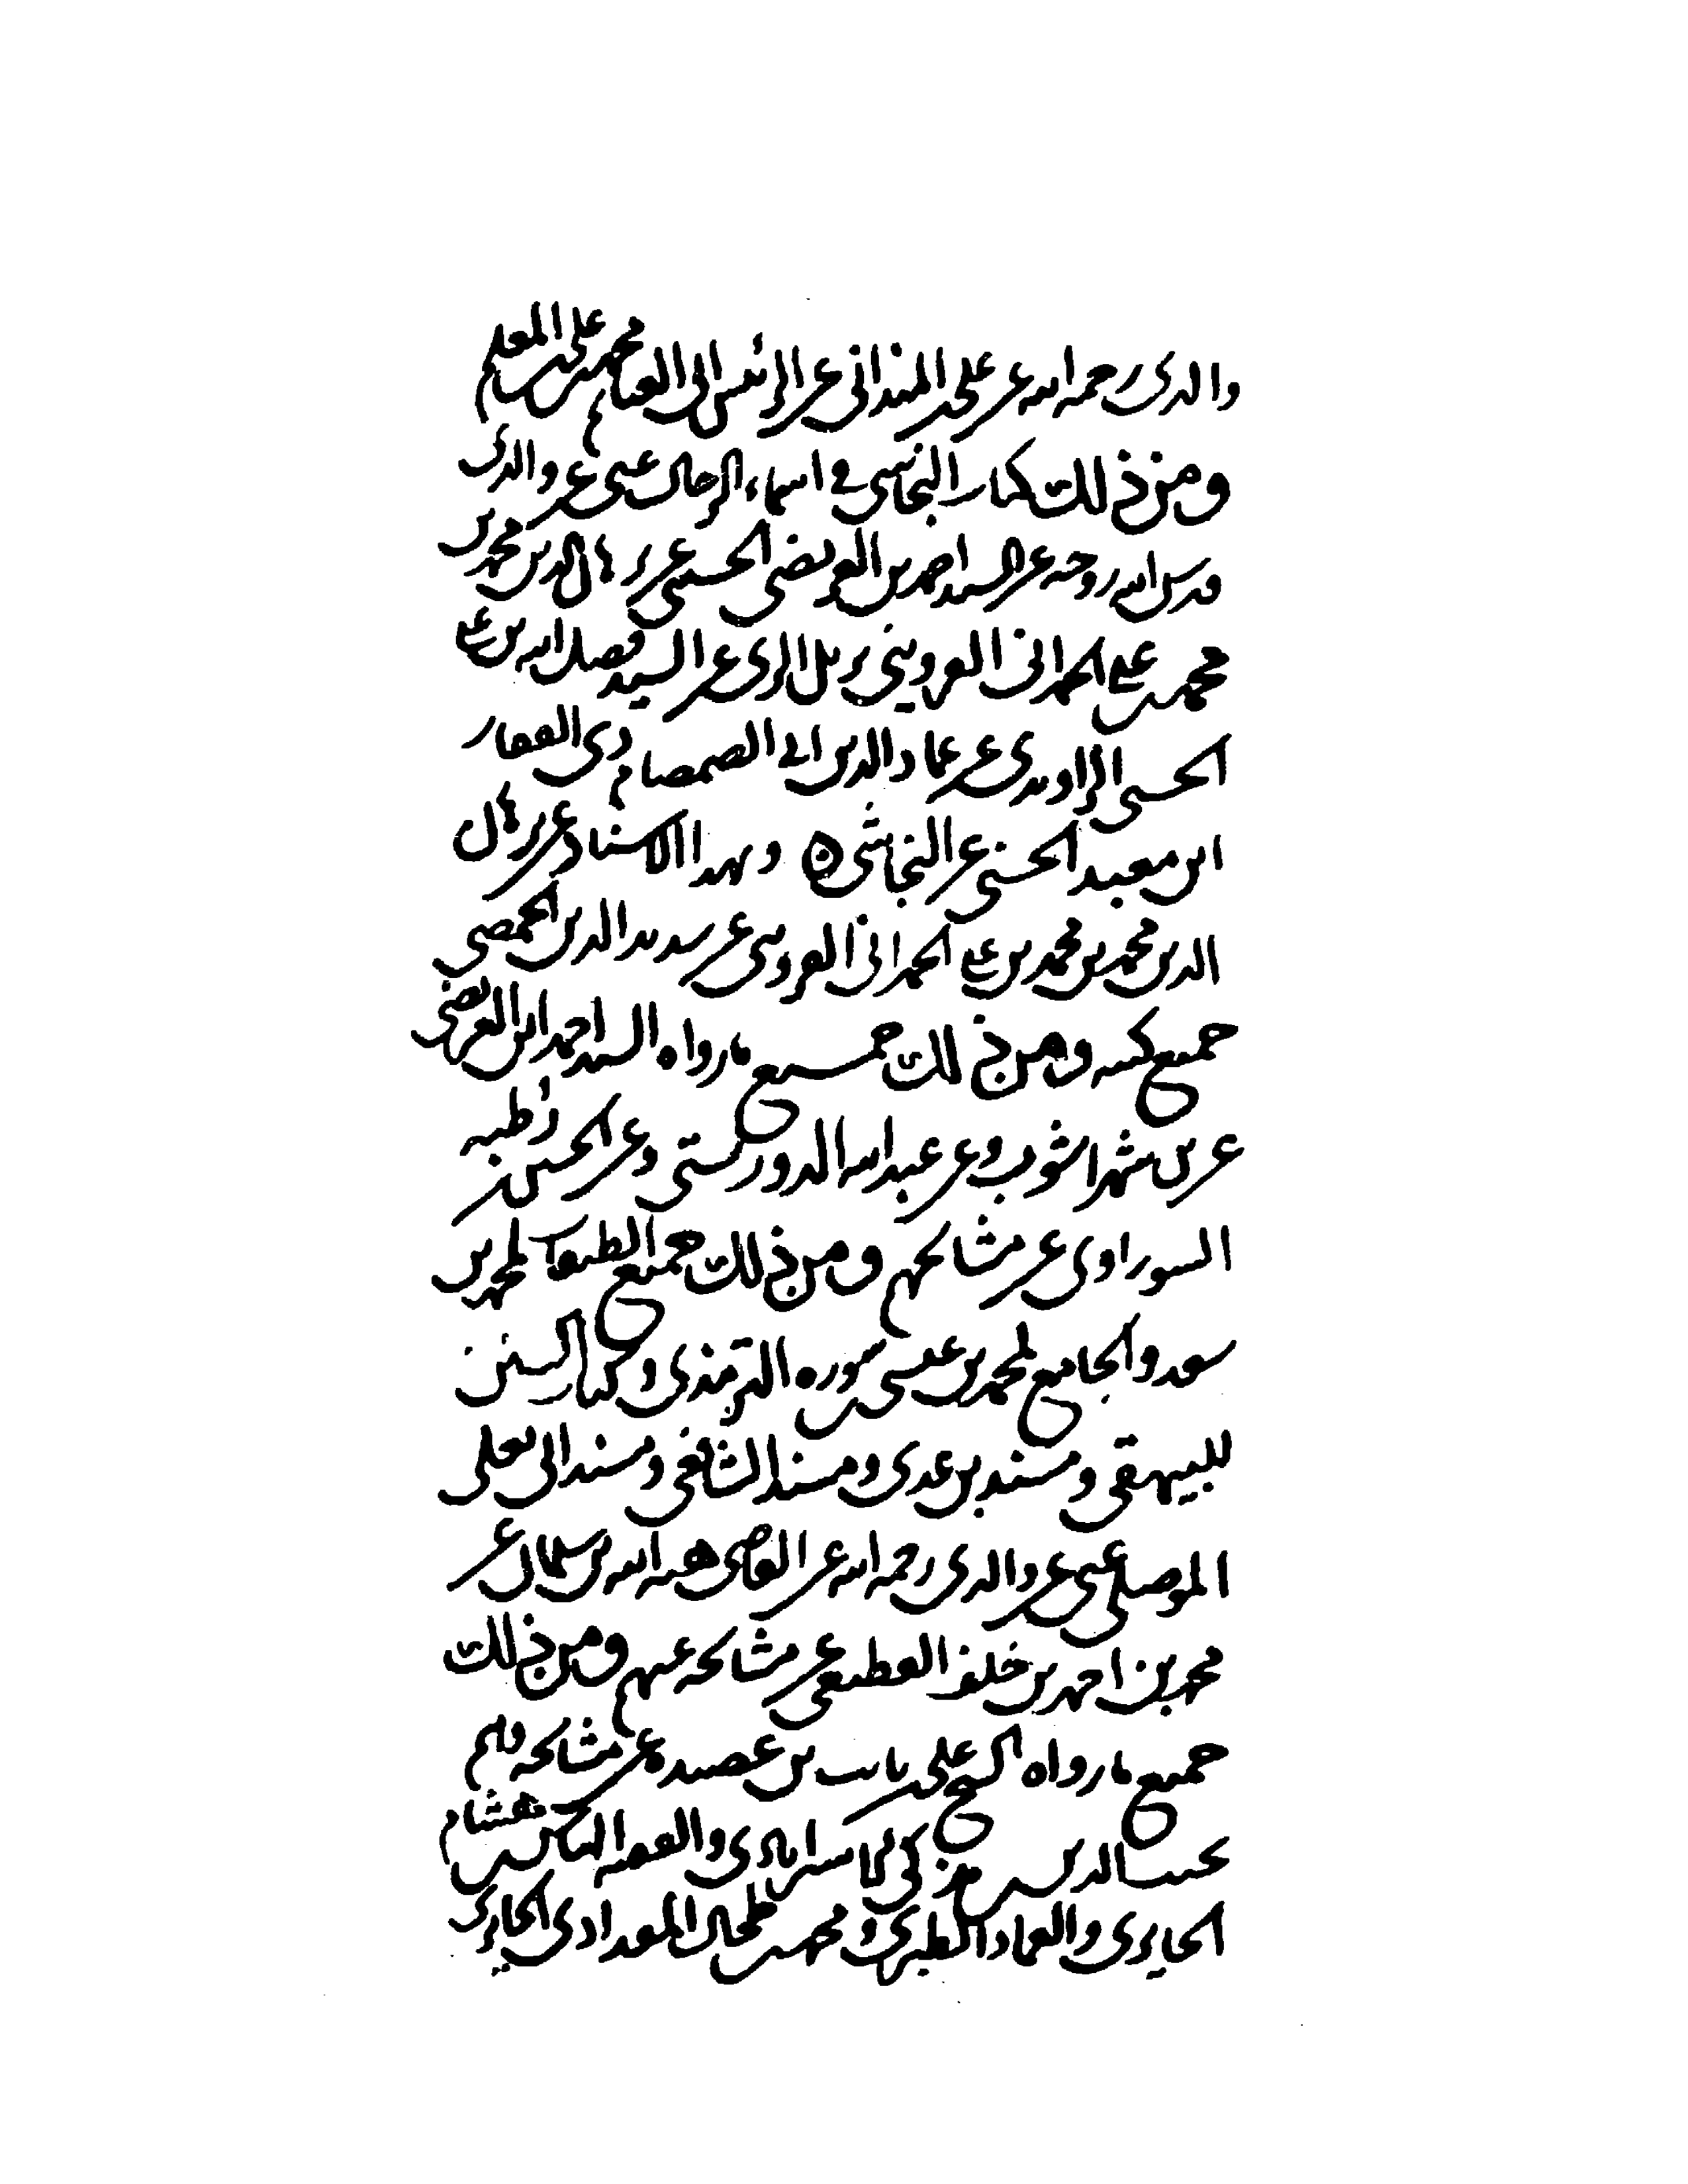 والدى رحمه الله عن على المندائى عن الرئيس ابى الغنائم محمد بن على بن المعلم
ومن ذلك كتاب النجاشى فى اسماء الرجال عنى عن والدى
قدس الله روحه عن السيد احمد بن العريضى الحسينى عن برهان الدين محمد بن
محمد بن على الحمدانى القزوينى نزيل الرى عن السيد فضل الله بن على
الحسنى الراوندى عن عماد الدين ابى الصمصام ذى الفقار
ابن معبد الحسنى عن النجاشى وبهذا الاسناد عن برهان
الدين محمد بن محمد بن على الحمدانى القزوينى عن سديد الدين الحمصى
جميع كتبه ومن ذلك جميع ما رواه السيد احمد ابن العريضى
عن بن شهراشوب وعن عبد الله الدوريستى وعن الحسين بن رطبه
السوراوى عن مشائخهم ومن ذلك جميع الطبقات لمحمد بن
سعد والجامع لمحمد بن عيسى سوره الترمذى وكتاب السنن
للبيهقى ومسند بن عدى ومسند الشافعى ومسند ابى يعلى
الموصلى عنى عن والدى رحمه الله عن القاضى هبه الله بن سلمان عن
محمد بن احمد بن خلف القطيعى عن مشائخه عنهم ومن ذلك
جميع ما رواه الشيخ على بن ثابت بن عصيده عن مشائخه وهم
نجيب الدين بن مذكى الاسترابادى والفقيه الياس بن هشام
الحايرى والعماد الطبرى ومحمد بن طحال المقدادى الحايرى